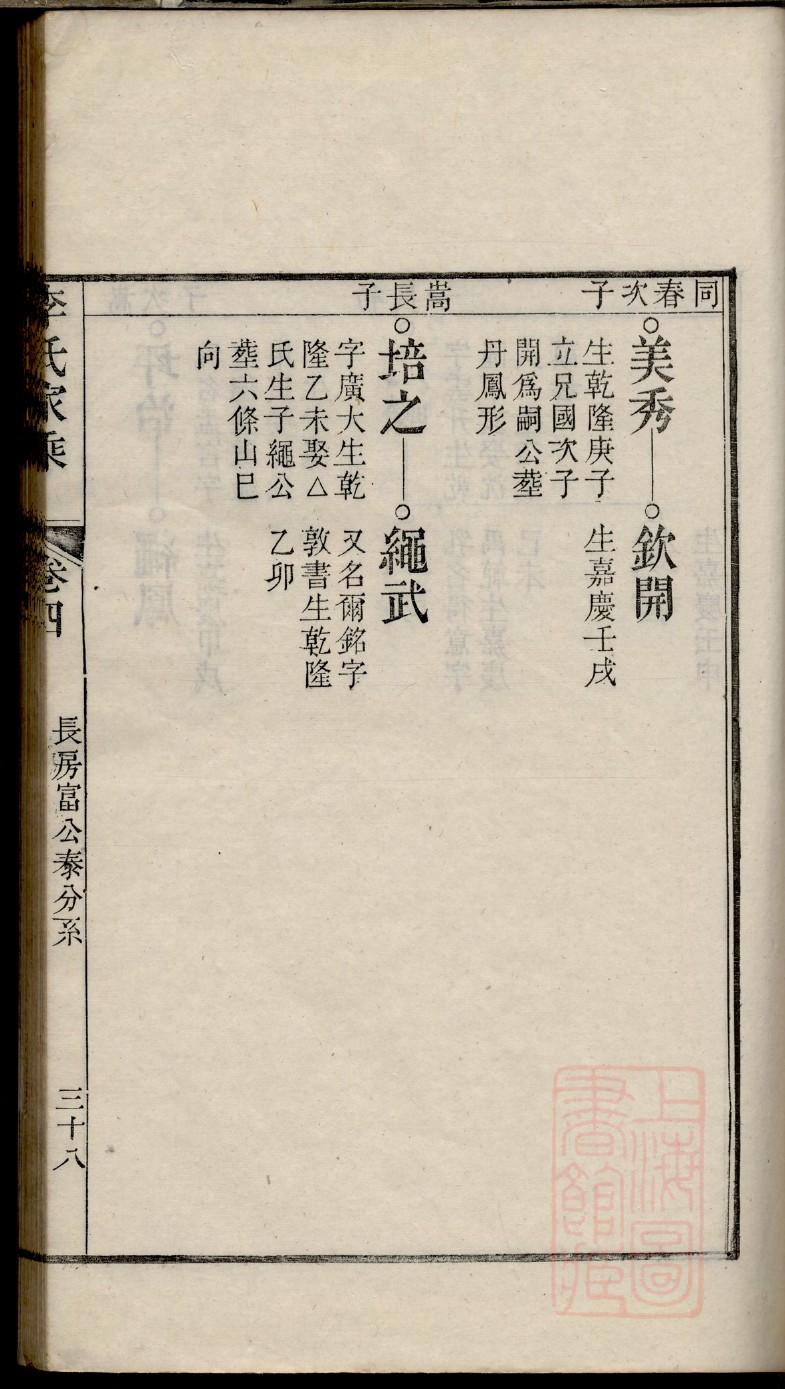 同春次子
美秀
生乾隆庚子
立兄國次子
開爲嗣公塟
丹鳳形
欽開
生嘉慶壬戌
嵩長子
培之
字廣大生乾
隆乙未娶△
氏生子繩公
塟六條山巳
向
繩武
又名爾銘字
敦書生乾隆
乙卯
李氏家乘
卷四
長房富公泰分系
三十八
上海圖
書館藏